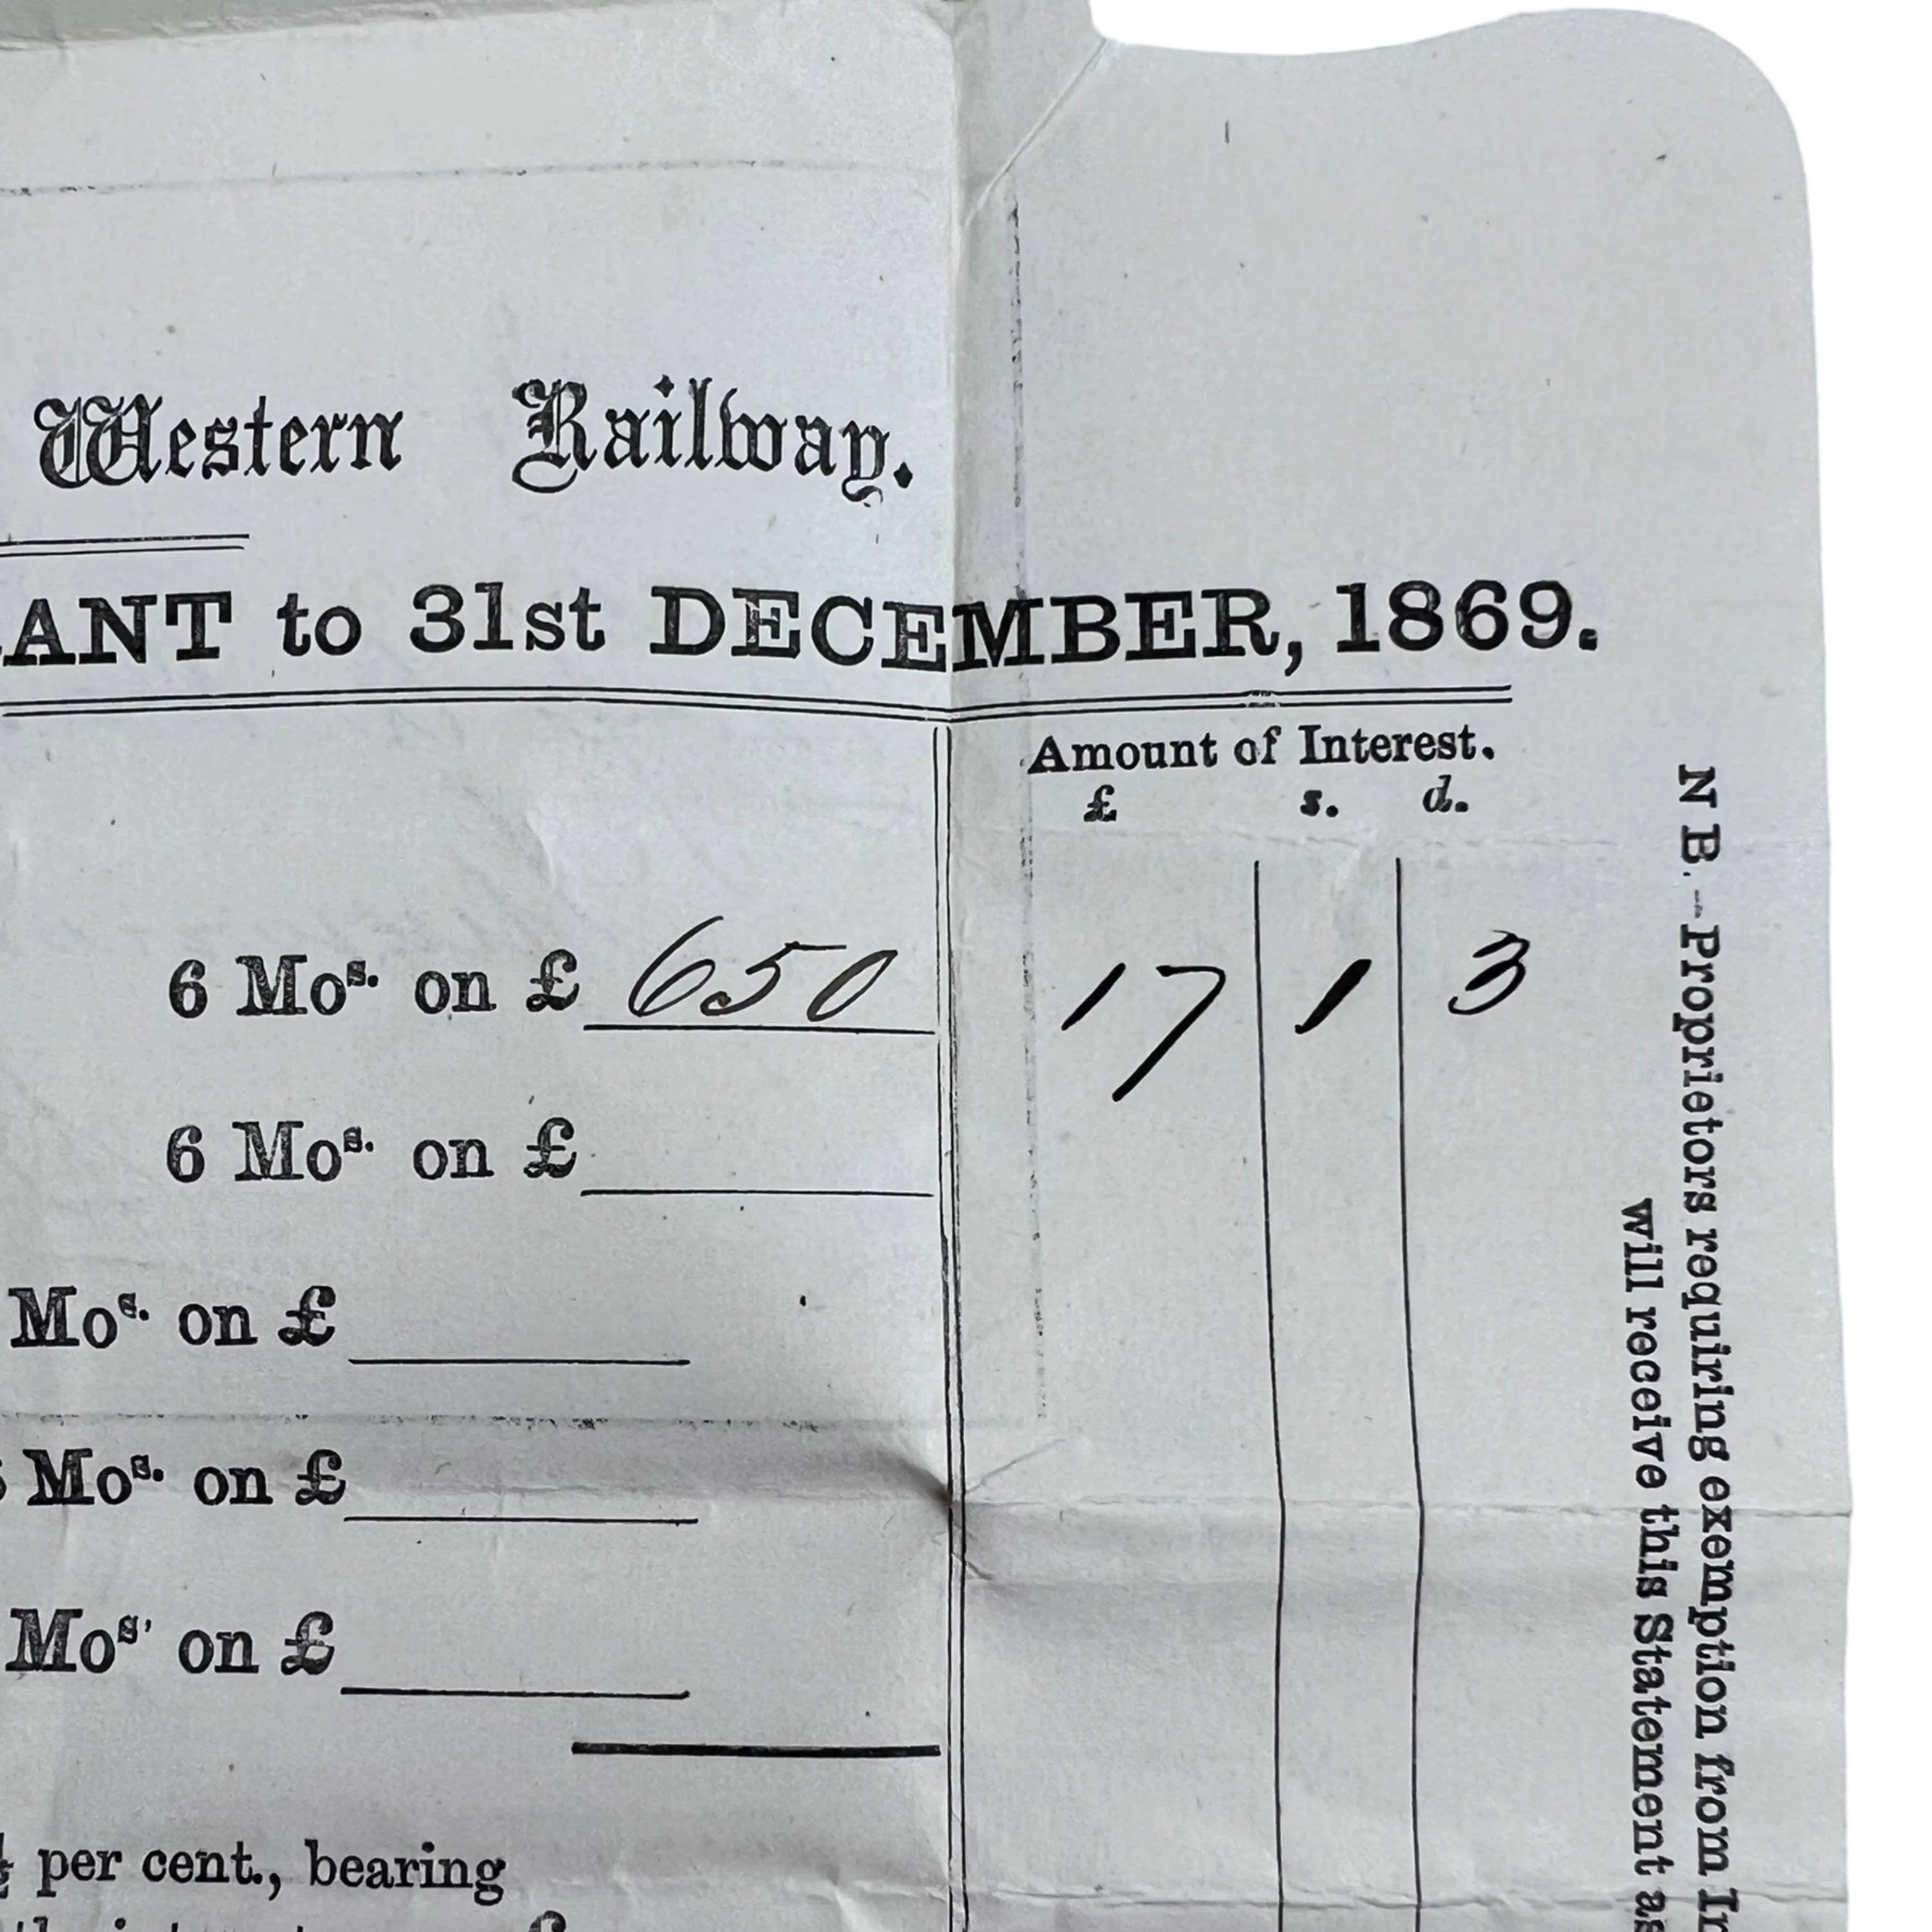 Western Railway.
ANT to 31st DECEMBER, 1869.
Amount of Interest.
£ s. d.
6 Mos. on £ 650 17 1 3
6 Mos. on £
Mos. on £
Mos. on £
Mos' on £
per cent., bearing
N B.—Proprietors requiring exemption from In
will receive this Statement as